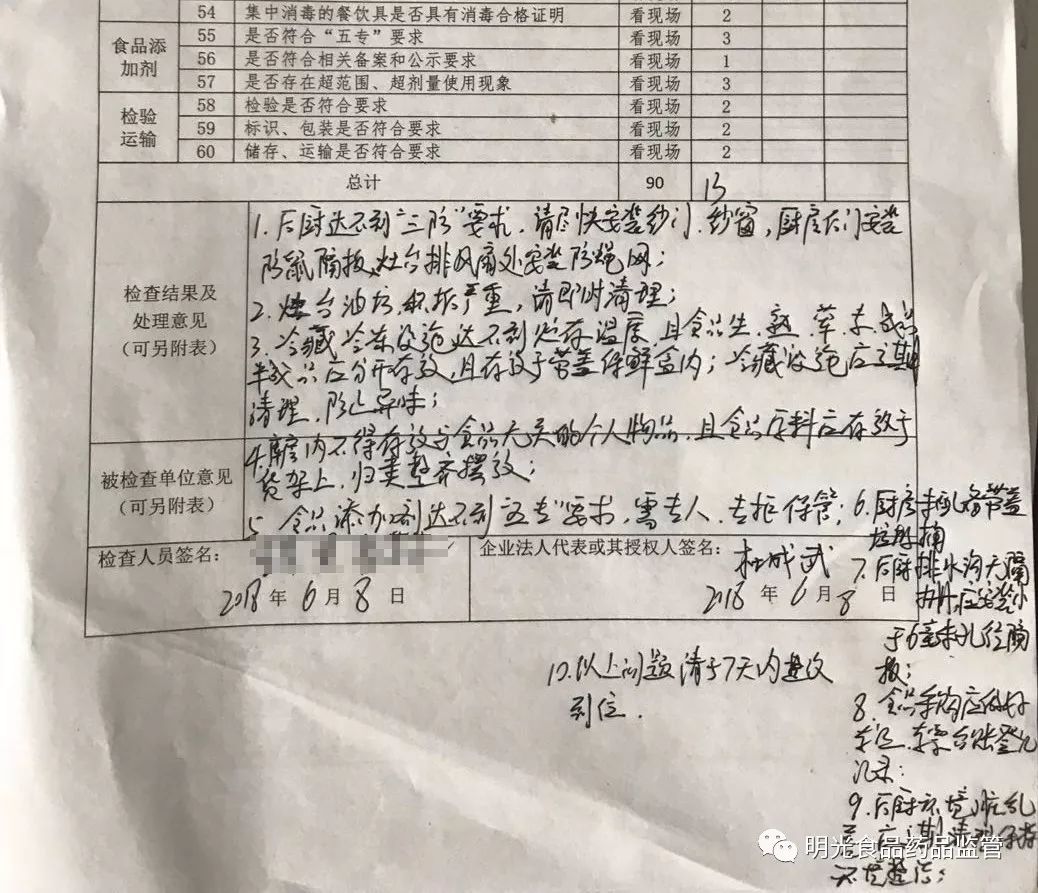 54 集中消毒的餐饮具是否具有消毒合格证明 看现场 2
食品添加剂
55 是否符合“五专”要求 看现场 3
56 是否符合相关备案和公示要求 看现场 1
57 是否存在超范围、超剂量使用现象 看现场 3
检验运输
58 检验是否符合要求 看现场 2
59 标识、包装是否符合要求 看现场 2
60 储存、运输是否符合要求 看现场 2
总计 90
检查结果及
处理意见
（可另附表）
1. 后厨达不到“三防”要求，请尽快安装纱门、纱窗，厨房后门安装
防鼠隔板、灶台排风扇处安装防蝇网；
2. 灶台油污积垢严重，请即时清理；
3. 冷藏冷冻设施达不到贮存温度，且食品生、熟、荤、素、成品
半成品应分开存放，且存放于带盖保鲜盒内；冷藏设施应定期
清理，防止异味；
4. 库房内不得存放与食品无关的个人物品，且食品原料应存放于
货架上，归类整齐摆放；
被检查单位意见
（可另附表）
5. 食品添加剂达不到“五专”要求，需专人、专柜保管；
6. 厨房 备带盖
桶
7. 后厨排水沟无隔
应安装小
于6毫米孔径隔
板；
8. 食品采购应做好
台账登记
记录；
9. 后厨环境脏乱
差，应定期清理保持
检查人员签名：
2018 年 6 月 8 日
企业法人代表或其授权人签名： 杜成武
2018 年 6 月 8 日
10. 以上问题请于7天内整改
到位．
明光食品药品监管